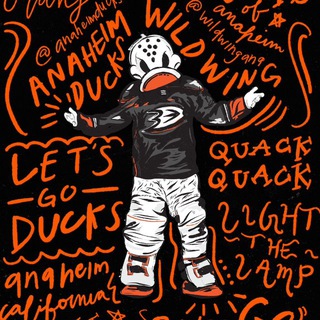 of
anaheim
@anaheimducks
@wildwingana
ANAHEIM
DUCKS
WILDWING
LET'S
GO
DUCKS
QUACK
QUACK
LIGHT
THE
LAMP
anaheim
california
GO